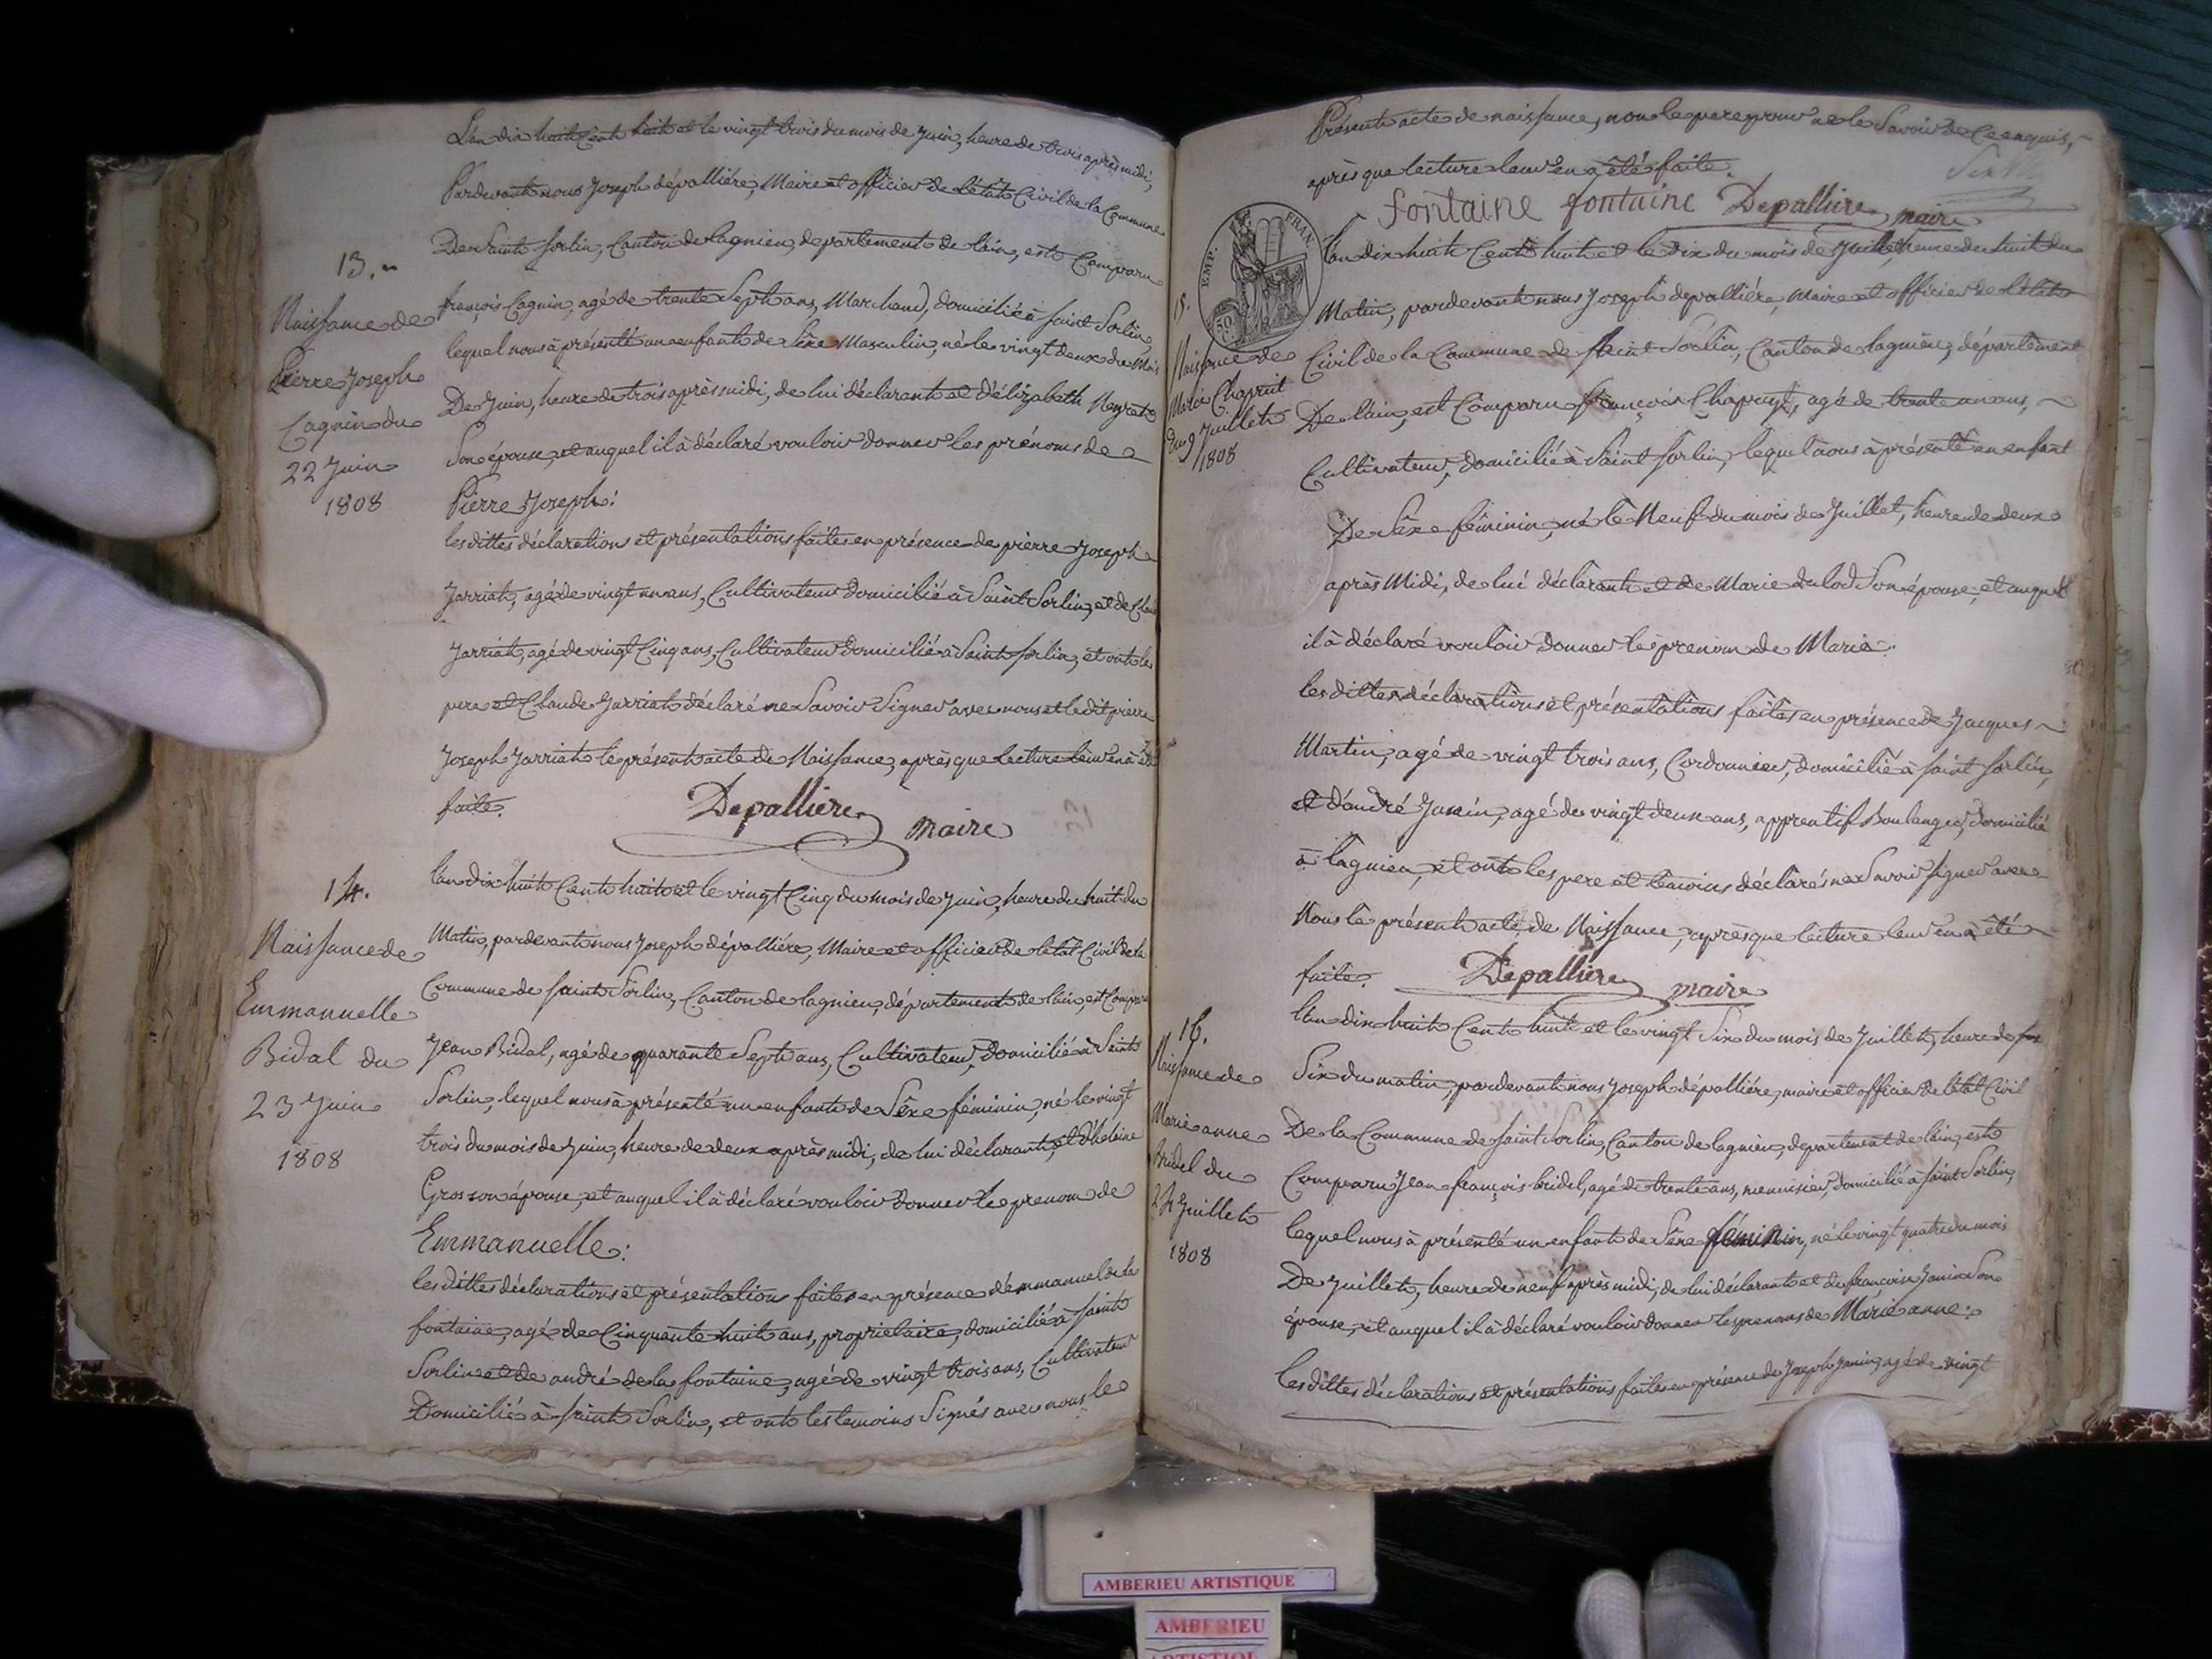 L'an dix huit Cent huit et le vingt trois du mois de Juin, heure de trois après midi,
Pardevant nous Joseph dépalliére, Maire et officier de l'état Civil de la Commune
De Saint Sorlin, Canton de lagnieu, departement de lain, est Comparu
13.
Naissance de
Pierre Joseph
Cagnin du
22 Juin
1808
françois Cagnin, agé de trente Sept ans, Marchand, domicilié à Saint Sorlin,
lequel nous à présenté un enfant de Sèxe Masculin, né le vingt deux du Mois
De Juin, heure de trois après midi, de lui déclarant et d'élizabeth Neyrat
Son épouse, et auquel il à déclaré vouloir donner les prénoms de
Pierre Joseph:
les dittes déclarations et présentations faites en présence de pierre Joseph
Jarriat, agé de vingt un ans, Cultivateur domicilié à Saint Sorlin, et de
Jarriat, agé de vingt Cinq ans, Cultivateur domicilié à Saint Sorlin, et ont le
pere et Claude Jarriat déclaré ne Savoir Signer avec nous et ledit pierre
Joseph Jarriat le présent acte de Naissance, après que lecture leur en à été
faite.
Depalliere maire
14.
Naissance de
Emmanuelle
Bidal du
23 Juin
1808
l'an dix huit Cent huit et le vingt Cinq du mois de Juin, heure de huit du
Matin, pardevant nous Joseph dépalliére, Maire et officier de l'etat Civil de la
Commune de Saint Sorlin, Canton de lagnieu, département de lain, est Comparu
Jean Bidal, agé de quarante Sept ans, Cultivateur, domicilié à Saint
Sorlin, lequel nous à présenté un enfant de Sèxe féminin, né le vingt
trois du mois de Juin, heure de deux après midi, de lui déclarant, et d'heleine
Gros son épouse, et auquel il à déclaré vouloir donner le prenom de
Emmanuelle:
les dittes déclarations et présentations faites en présence d'emmanuel de la
fontaine, agé de Cinquante huit ans, proprietaire, domicilié à Saint
Sorlin et de andré de la fontaine, agé de vingt trois ans, Cultivateur
Domicilié à Saint Sorlin, et ont les temoins Signés avec nous le
Présent acte de naissance, non le pere pour ne le Savoir de Ce enquis,
après que lecture leur en a été faite.
fontaine fontaine Depalliere maire
EMP. FRAN.
50
15.
Naissance de
Marie Chapuit
du 9 Juillet
1808
l'an dix huit Cent huit et le dix du mois de Juillet, heure de huit du
Matin, pardevant nous Joseph depalliére, Maire et officier de l'état
Civil de la Commune de Saint Sorlin, Canton de lagnieu, département
De lain, est Comparu françois Chapuyt, agé de trente un ans,
Cultivateur, domicilié à Saint Sorlin, lequel nous à présenté un enfant
De Sèxe féminin, né le Neuf du mois de Juillet, heure de deux
après Midi, de lui déclarant et de Marie dulod Son épouse, et auquel
il à déclaré vouloir donner le prenom de Marie:
les dittes déclarations et présentations faites en présence de Jacques
Martin, agé de vingt trois ans, Cordonnier, domicilié à Saint Sorlin,
et d'andré Janin, agé de vingt deux ans, apprentif Boulanger, domicilié
à lagnieu, et ont les pere et témoins déclarés ne Savoir Signer avec
Nous le présent acte de Naissance, après que lecture leur en a été
faite. Depalliere maire
16.
Naissance de
Marie anne
Bridel du
24 Juillet
1808
l'an dix huit Cent huit et le vingt Six du mois de Juillet, heure de
Six du matin, pardevant nous Joseph dépalliére, maire et officier de l'état Civil
De la Commune de Saint Sorlin, Canton de lagnieu, departement de lain, est
Comparu Jean françois bridel, agé de trente ans, menuisier, domicilié à Saint Sorlin,
lequel nous à présenté un enfant de Sèxe féminin, né le vingt quatre du mois
De Juillet, heure de neuf après midi, de lui déclarant et de françoise Janin Son
épouse, et auquel il à déclaré vouloir donner les prenoms de Marie anne:
les dittes déclarations et présentations faites en présence de Joseph Janin, agé de vingt
AMBERIEU ARTISTIQUE
AMBERIEU
ARTISTIQUE